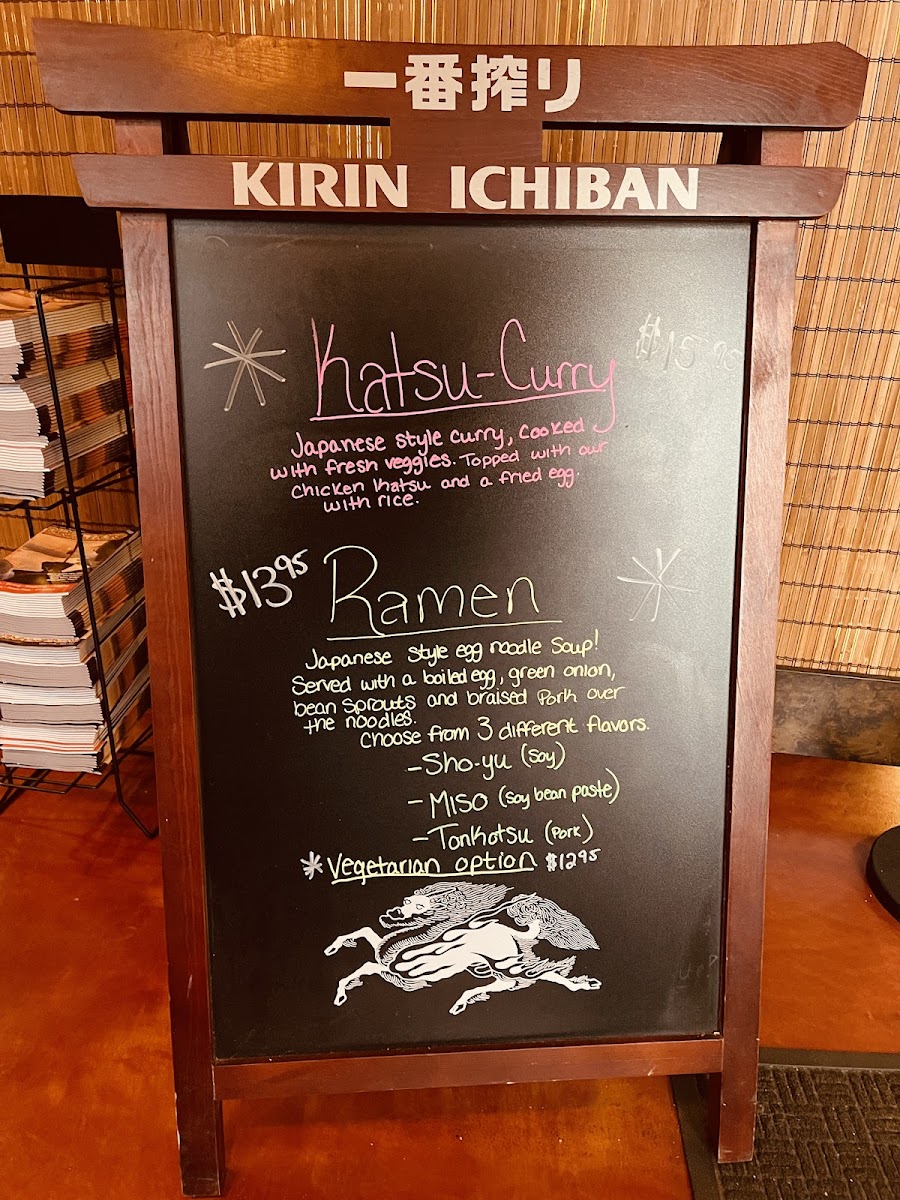 一番搾り
KIRIN ICHIBAN
Katsu-Curry $15
Japanese style curry, cooked
with fresh veggies. Topped with our
Chicken Katsu and a fried egg.
with rice.
$13.95 Ramen
Japanese Style egg noodle Soup!
Served with a boiled egg, green onion,
bean Sprouts and braised Pork over
the noodles.
Choose from 3 different flavors.
-Sho-yu (Soy)
-Miso (soy bean paste)
-Tonkotsu (Pork)
*Vegetarian option $12.95